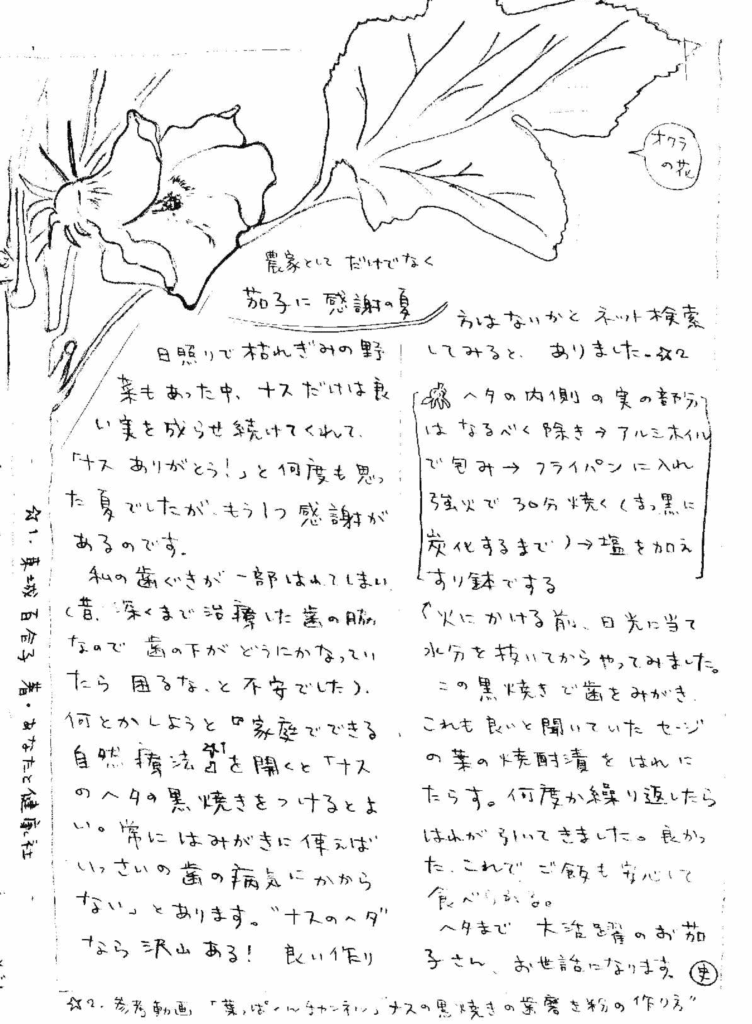 オクラ
の花
農家として だけでなく
茄子に 感謝の夏
日照りで枯れぎみの野
菜もあった中、ナスだけは良
い実を成らせ続けてくれて、
「ナス ありがとう!」と何度も思っ
た夏でしたが、もう1つ感謝が
あるのです。
私の歯ぐきが一部はれてしまい
(昔、深くまで治療した歯の脇
なので 歯の下がどうにかなってい
たら 困るな、と不安でした)、
何とかしようと『家庭でできる
自然療法☆1』を開くと「ナス
のヘタの黒焼きをつけるとよ
い。常にはみがきに使えば
いっさいの歯の病気にかから
ない」とあります。“ナスのヘタ”
なら沢山ある! 良い作り
方はないかと ネット検索
してみると、ありました。☆2
ヘタの内側の実の部分
は なるべく除き→アルミホイル
で包み→フライパンに入れ
強火で30分焼く(まっ黒に
炭化するまで)→塩を加え
すり鉢でする
↑火にかける前、日光に当て
水分を抜いてからやってみました。
この黒焼きで歯をみがき、
これも良いと聞いていた セージ
の葉の焼酎漬をはれに
たらす。何度か繰り返したら
はれが引いてきました。良かっ
た、これで、ご飯も安心して
食べられる。
ヘタまで 大活躍のお茄
子さん、お世話になります。史
☆1. 東城百合子 著・あなたと健康社
☆2. 参考動画 「葉っぱくんチャンネル」“ナスの黒焼きの歯磨き粉の作り方”